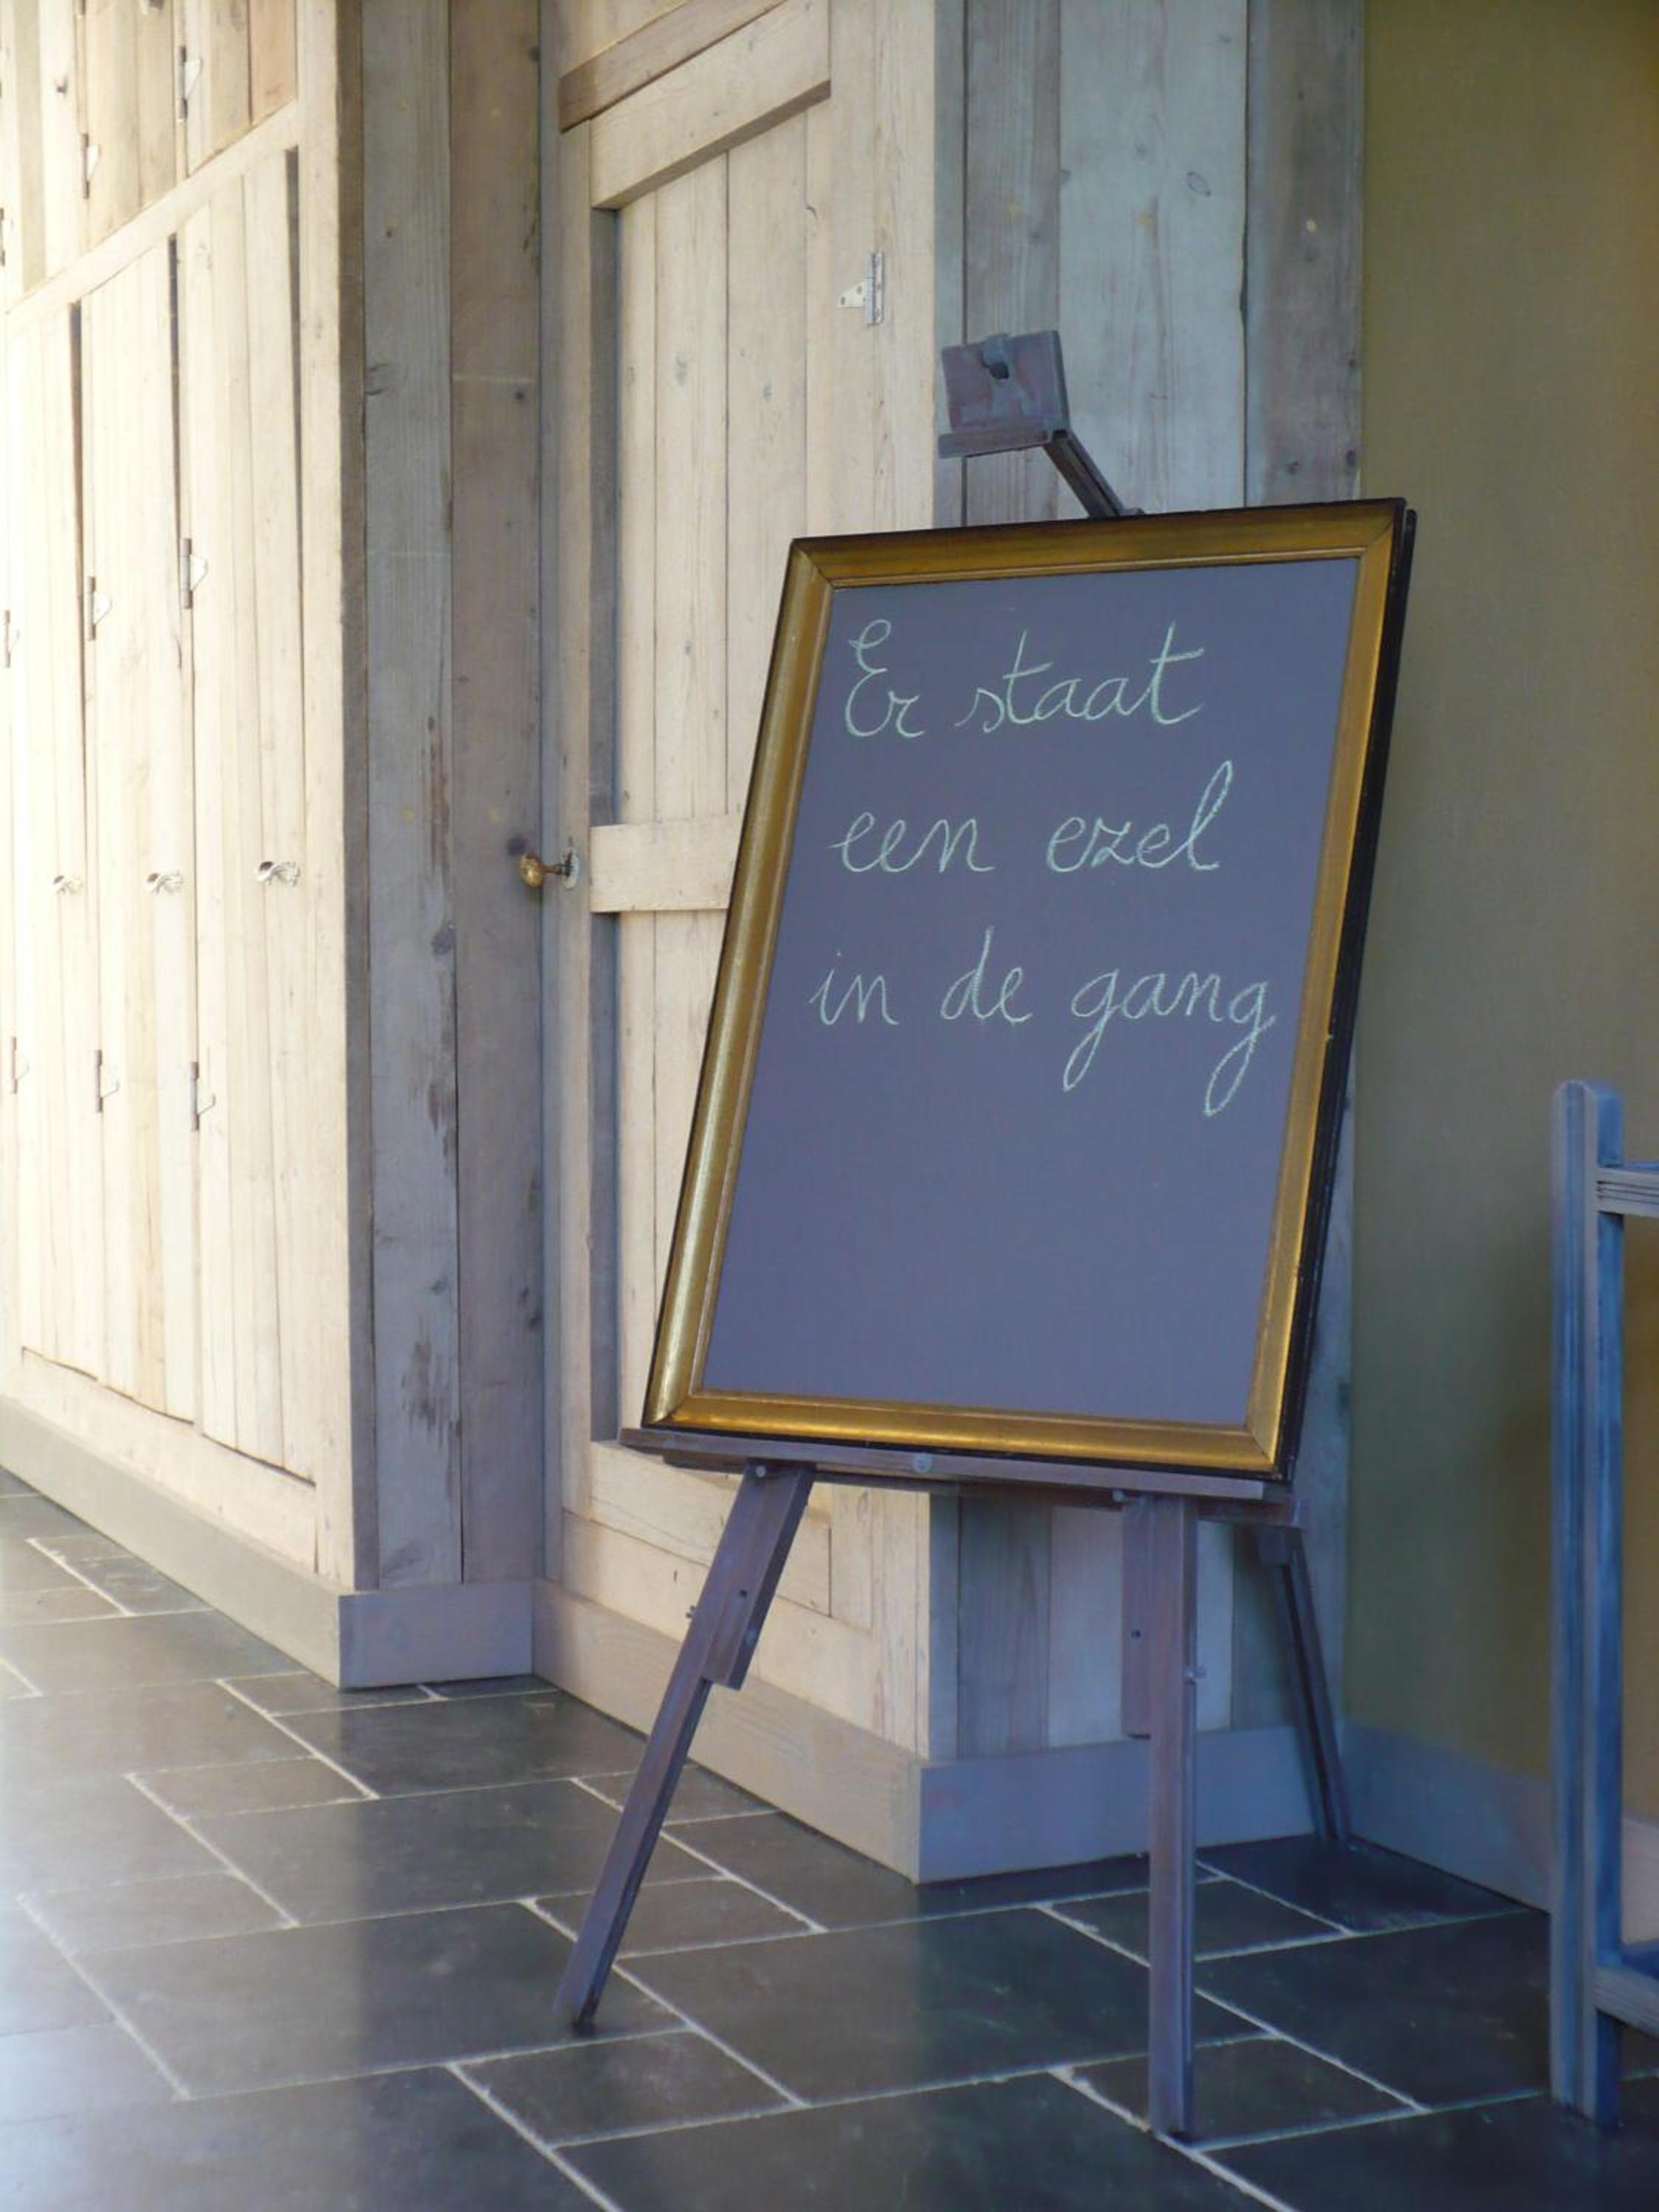 Er staat
een ezel
in de gang